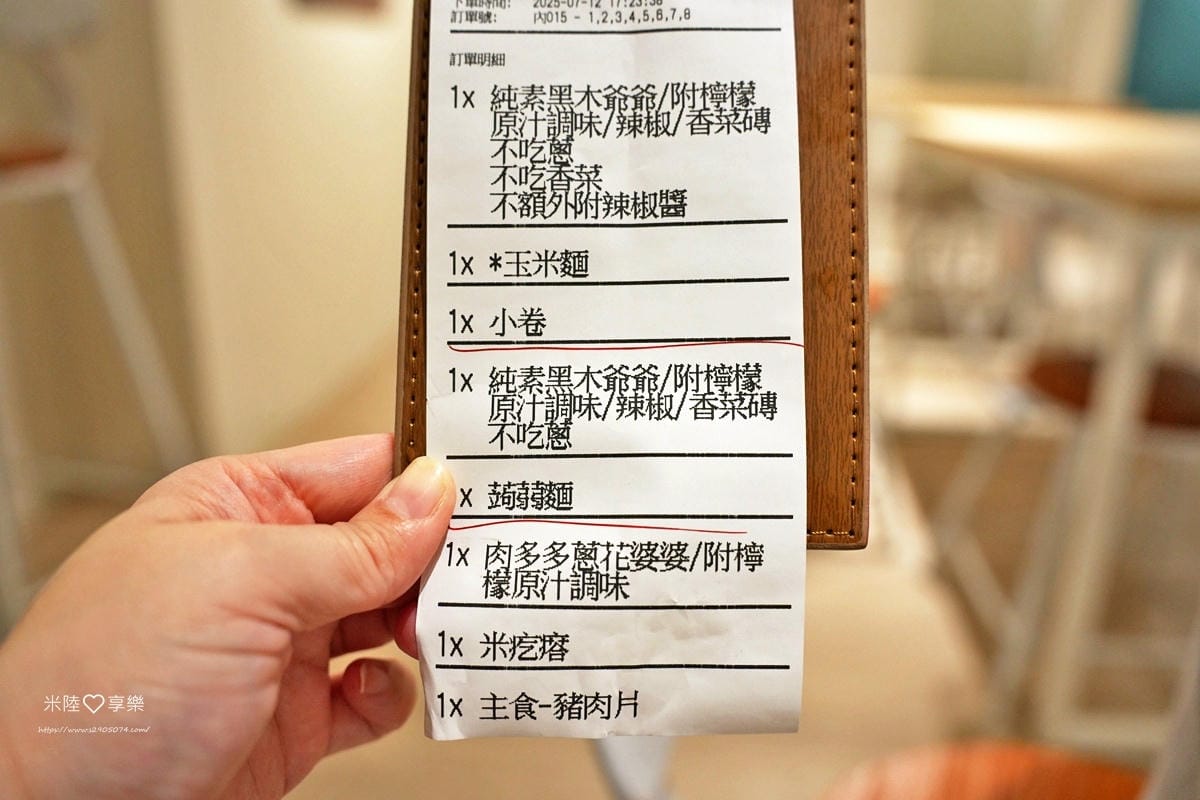 下單時間: 2025-07-12 17:23:38
訂單號: 內015 - 1,2,3,4,5,6,7,8
訂單明細
1x 純素黑木爺爺/附檸檬
原汁調味/辣椒/香菜磚
不吃蔥
不吃香菜
不額外附辣椒醬
1x *玉米麵
1x 小卷
1x 純素黑木爺爺/附檸檬
原汁調味/辣椒/香菜磚
不吃蔥
x 蒟蒻麵
1x 肉多多蔥花婆婆/附檸
檬原汁調味
1x 米疙瘩
1x 主食-豬肉片
米陸♡享樂
https://www.s2905074.com/